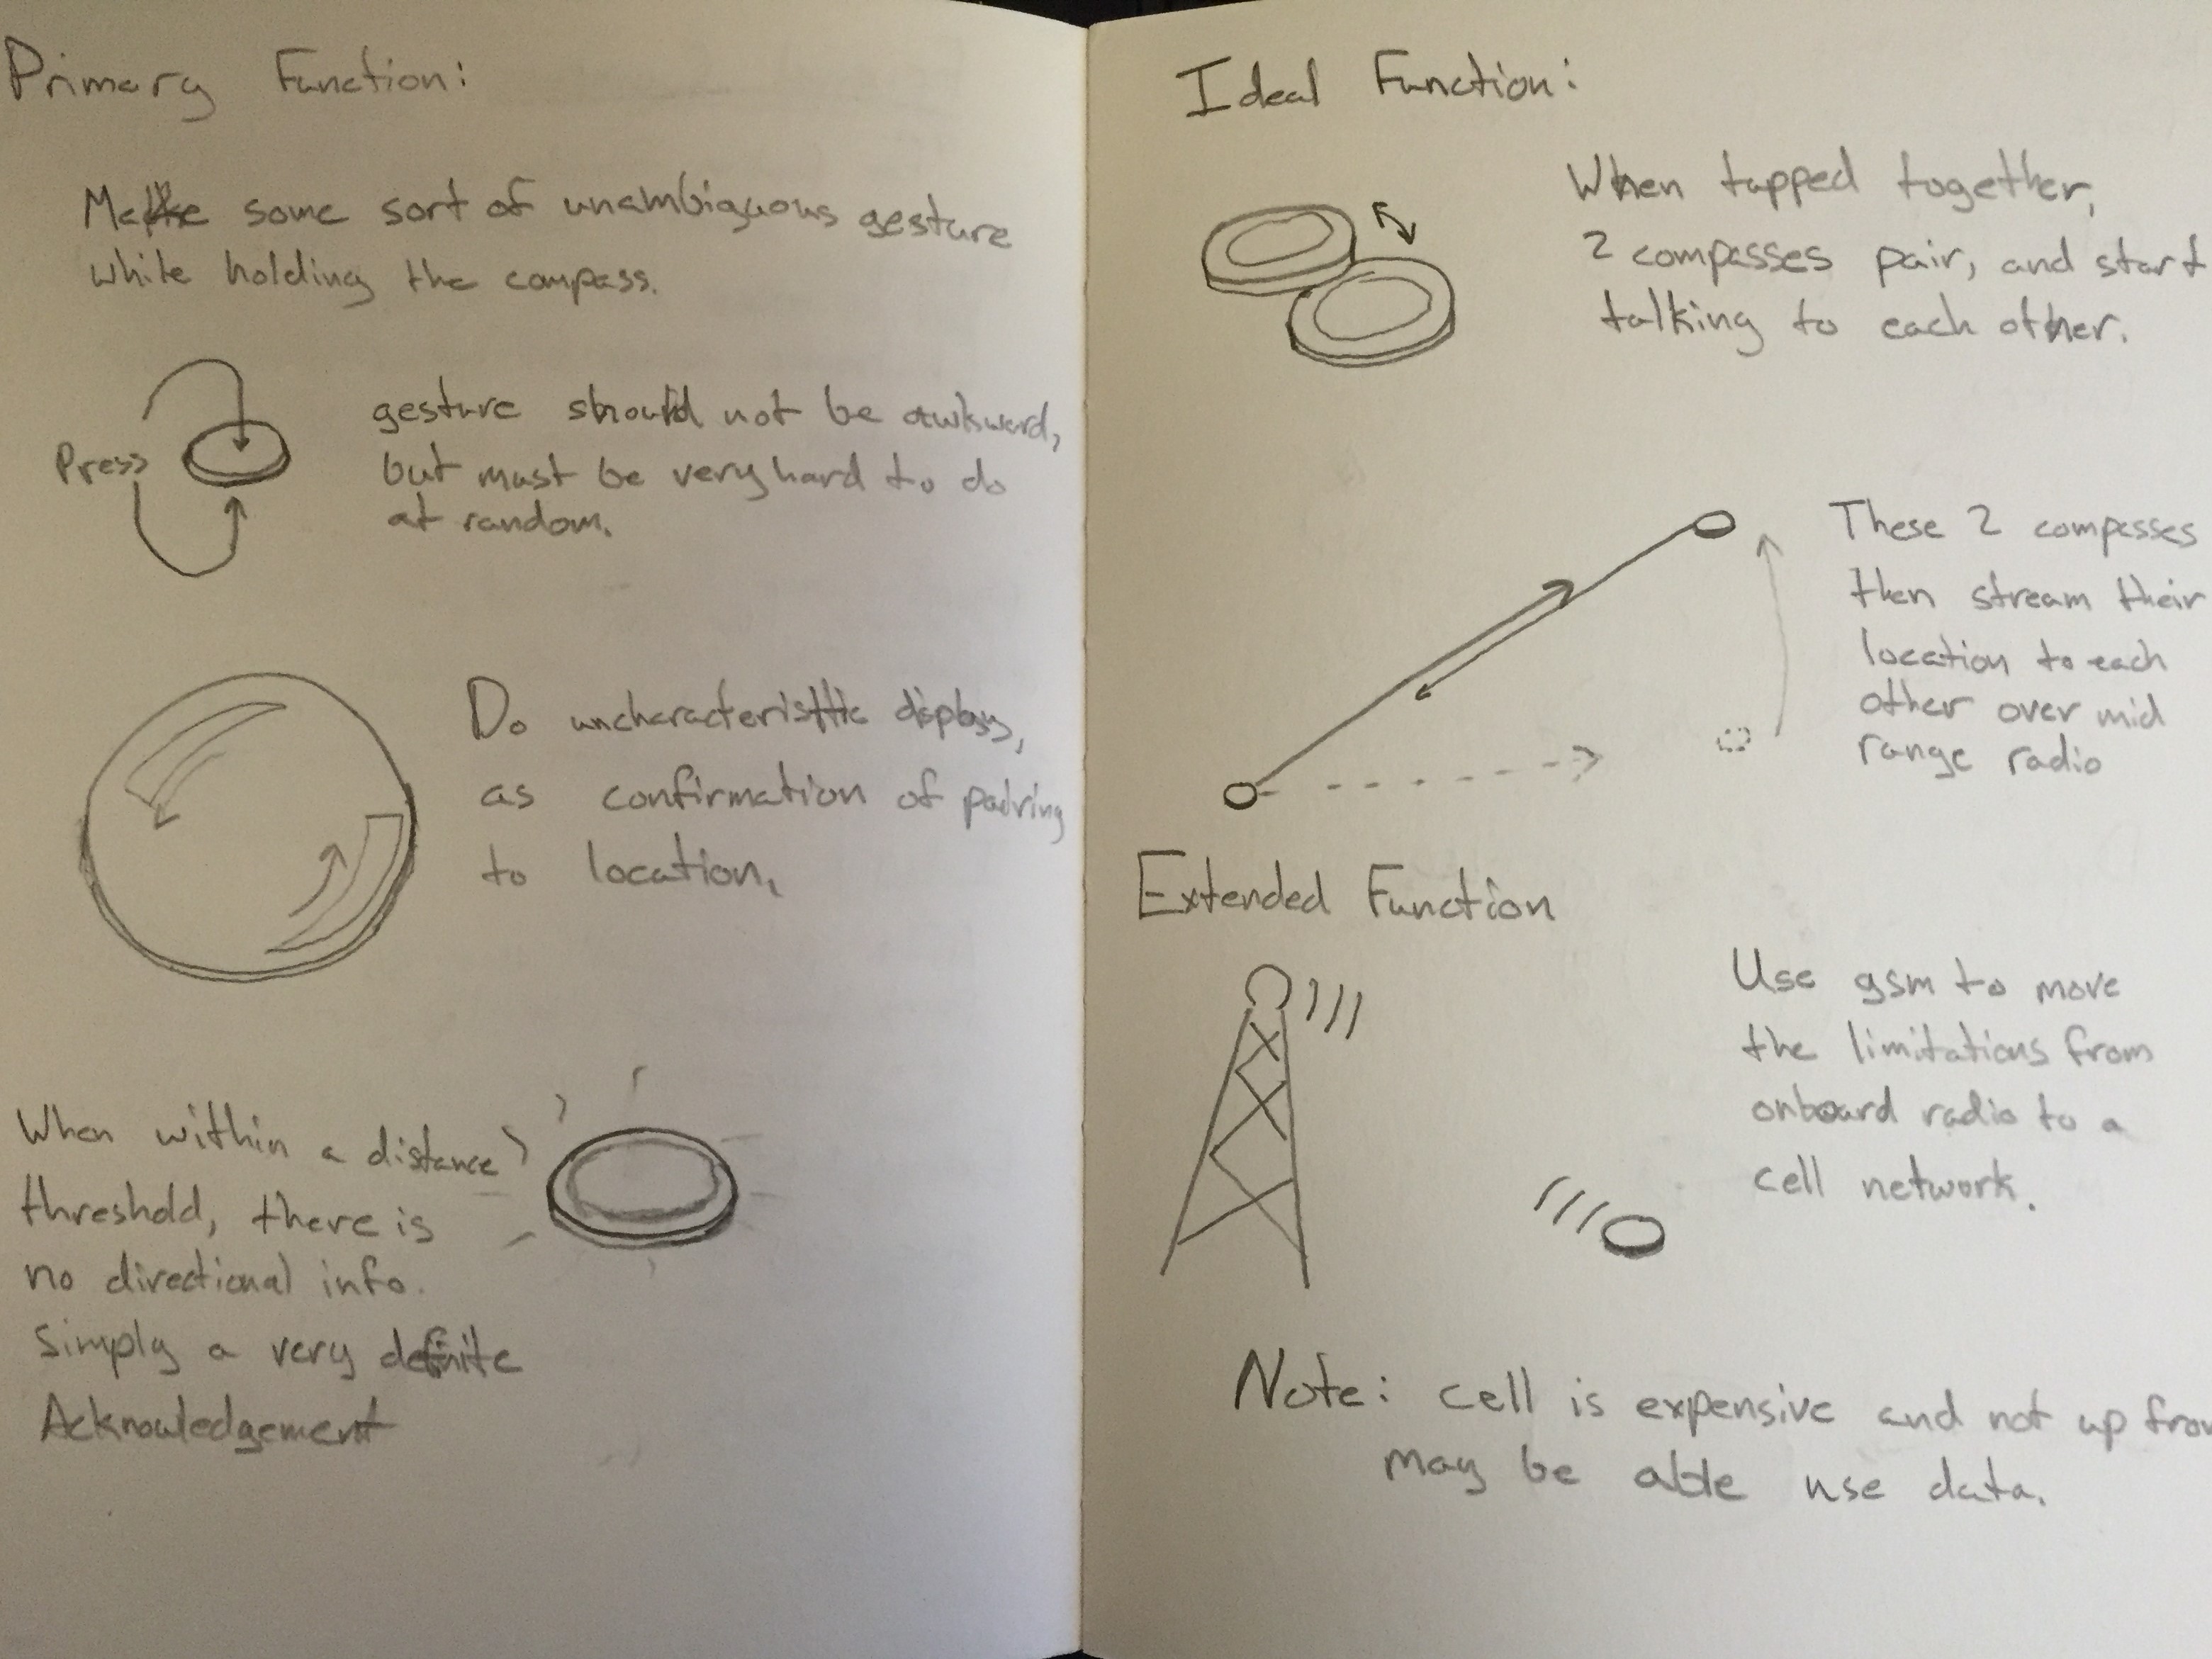 Primary Function:
Make some sort of unambiguous gesture
while holding the compass.
Press
gesture should not be awkward,
but must be very hard to do
at random.
Do uncharacteristic display,
as confirmation of pairing
to location.
When within a distance
threshold, there is
no directional info.
Simply a very definite
Acknowledgement
Ideal Function:
When tapped together,
2 compasses pair, and start
talking to each other.
These 2 compasses
then stream their
location to each
other over mid
range radio
Extended Function
Use gsm to move
the limitations from
onboard radio to a
cell network.
Note: cell is expensive and not up
may be able use data.